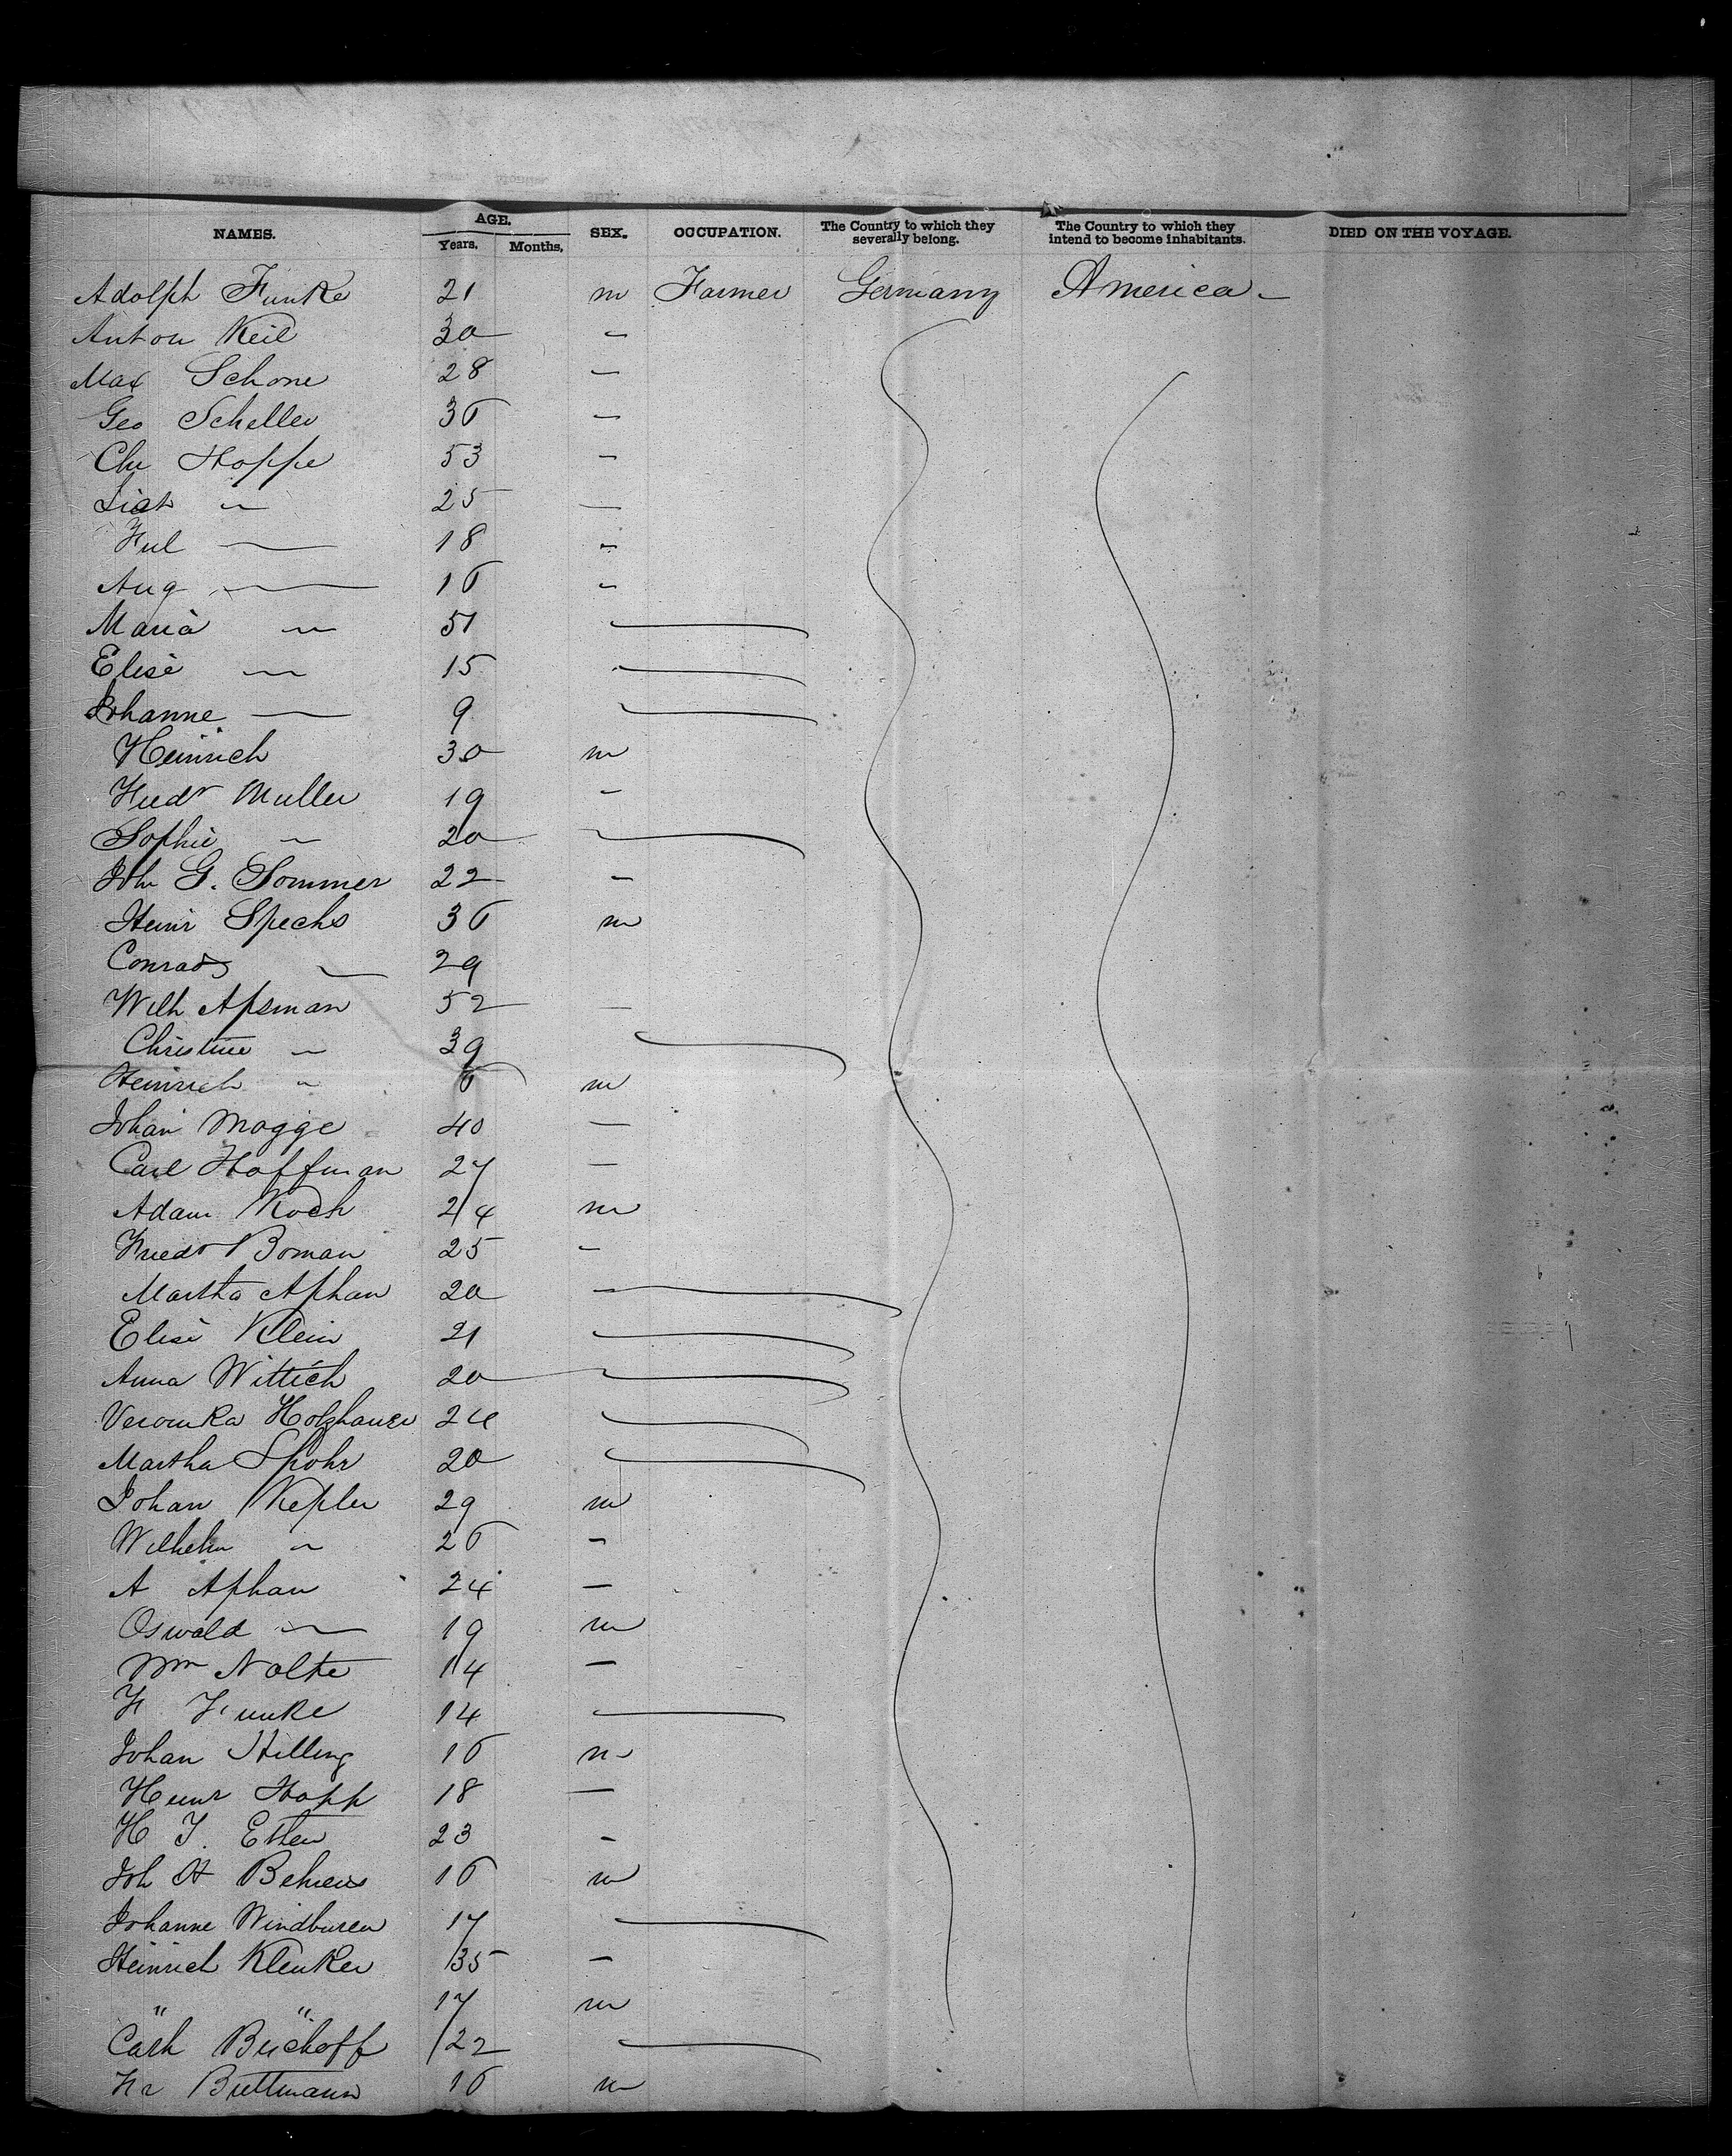 NAMES. AGE. Years. Months. SEX. OCCUPATION. The Country to which they severally belong. The Country to which they intend to become inhabitants. DIED ON THE VOYAGE.
Adolph Funke 21 m Farmer Germany America
Anton Keil 30 —
Max Schone 28 —
Geo Scheller 36 —
Chr Hoppe 53 —
25 —
18 —
Aug — 16 —
Maria — 51
Elise — 15
Johanne — 9
Heinrich 30 m
Friedr Muller 19 —
Sophie — 20
Joh G. Sommer 22 —
Heinr Spechs 36 m
Conrad — 29
Wilh Apsman 52 —
Christine — 39
Heinrich " 6 m
Johan Mogge 40 —
Carl Hoffman 27 —
Adam Koch 24 m
Friedr Boman 25 —
Martha Aphan 20
Elise Klein 21
Anna Wittich 20
Veronika Holzhauer 24
Martha Spohr 20
Johan Kepler 29 m
Wilhelm — 26 —
A Aphan 24 —
Oswald — 19 m
Wm Nolte 14 —
F Funke 14
Johan Hilling 16 m
Heinr Hopp 18 —
H J. Etten 23 —
Joh H Behrens 16 m
Johanne Windburen 17
Heinrich Klenker 35 —
" " 17 m
Cath Bischoff 22
Fr Buttmann 16 m